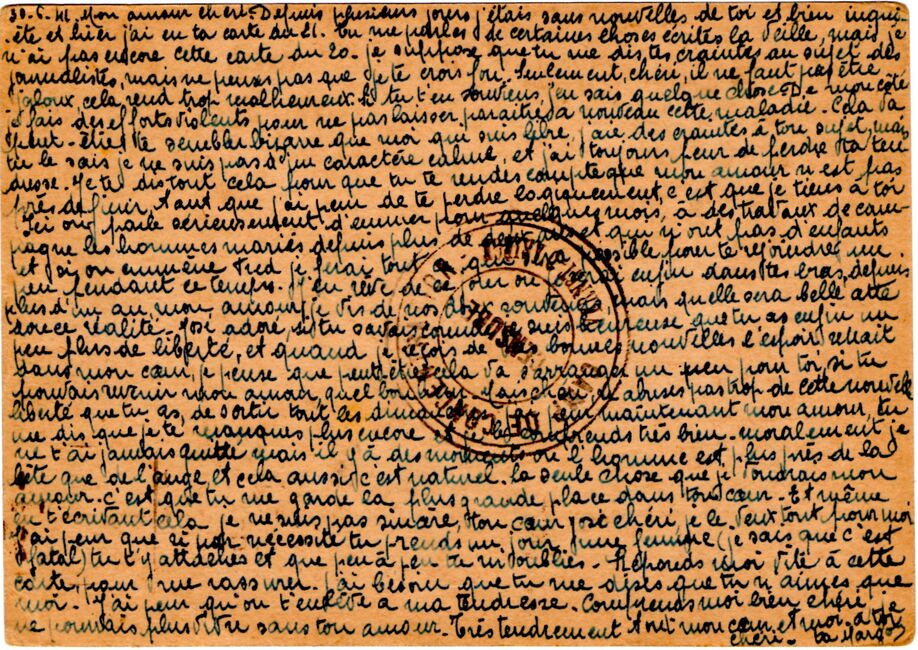 30.6.41. Mon amour chéri. Depuis plusieurs jours j'étais sans nouvelles de toi et bien inqui-
ète et hier j'ai eu ta carte du 21. Tu me parles de certaines choses écrites la veille, mais je
n'ai pas encore cette carte du 20. Je suppose que tu me dis tes craintes au sujet des
journalistes, mais ne penses pas que je te crois fou. Seulement, chéri, il ne faut pas être
jaloux, cela rend trop malheureux. Si tu t'en souviens, j'en sais quelque chose. De mon côté
je fais des efforts violents pour ne pas laisser paraître à nouveau cette maladie. Cela va
peut-être te sembler bizarre que moi qui suis libre, j'aie des craintes à ton sujet, mais
tu le sais je ne suis pas d'un caractère calme, et j'ai toujours peur de perdre ta ten
dresse. Je te dis tout cela pour que tu te rendes compte que mon amour n'est pas
près de finir. Autant que j'ai peur de te perdre logiquement, c'est que je tiens à toi
Ici on parle sérieusement d'emmener pour quelques mois, à des travaux de cam
pagne les hommes mariés depuis plus de et qui n'ont pas d'enfants
et si on emmène Fred je ferai tout possible pour te rejoindre un
peu pendant ce temps. J'en rêve de ce jour où enfin dans tes bras, depuis
plus d'un an, mon amour, je vis de nos doux souvenirs, mais quelle sera belle cette
douce réalité. José adoré si tu savais comme je suis heureuse que tu as enfin un
peu plus de liberté, et quand je reçois de bonnes nouvelles l'espoir renait
dans mon cœur, je pense que peut-être cela va s'arranger un peu pour toi, si tu
pouvais revenir mon amour, quel bonheur. abuses pas trop de cette nouvelle
liberté que tu as, de sortir tout les dimanches maintenant mon amour, tu
me dis que je te manques plus encore je le comprends très bien. moralement je
ne t'ai jamais quitté mais il y a des moments où l'homme est plus près de la
bête que de l'ange, et cela aussi c'est naturel. La seule chose que je voudrais mon
amour. c'est que tu me garde la plus grande place dans ton cœur. Et même
en t'écrivant cela je ne suis pas sincère, ton cœur José chéri, je le veux tout pour moi
J'ai peur que si par nécessité tu prends un jour une femme (je sais que c'est
fatal) tu t'y attaches et que peu à peu tu m'oublies. Réponds moi vite à cette
carte, pour me rassurer. J'ai besoin que tu me dises que tu n'aimes que
moi. J'ai peur qu'on t'enlève à ma tendresse. Comprends moi bien chéri, je
ne pourrais plus vivre sans ton amour. Très tendrement tout mon cœur et moi à toi
chéri. ta Margo